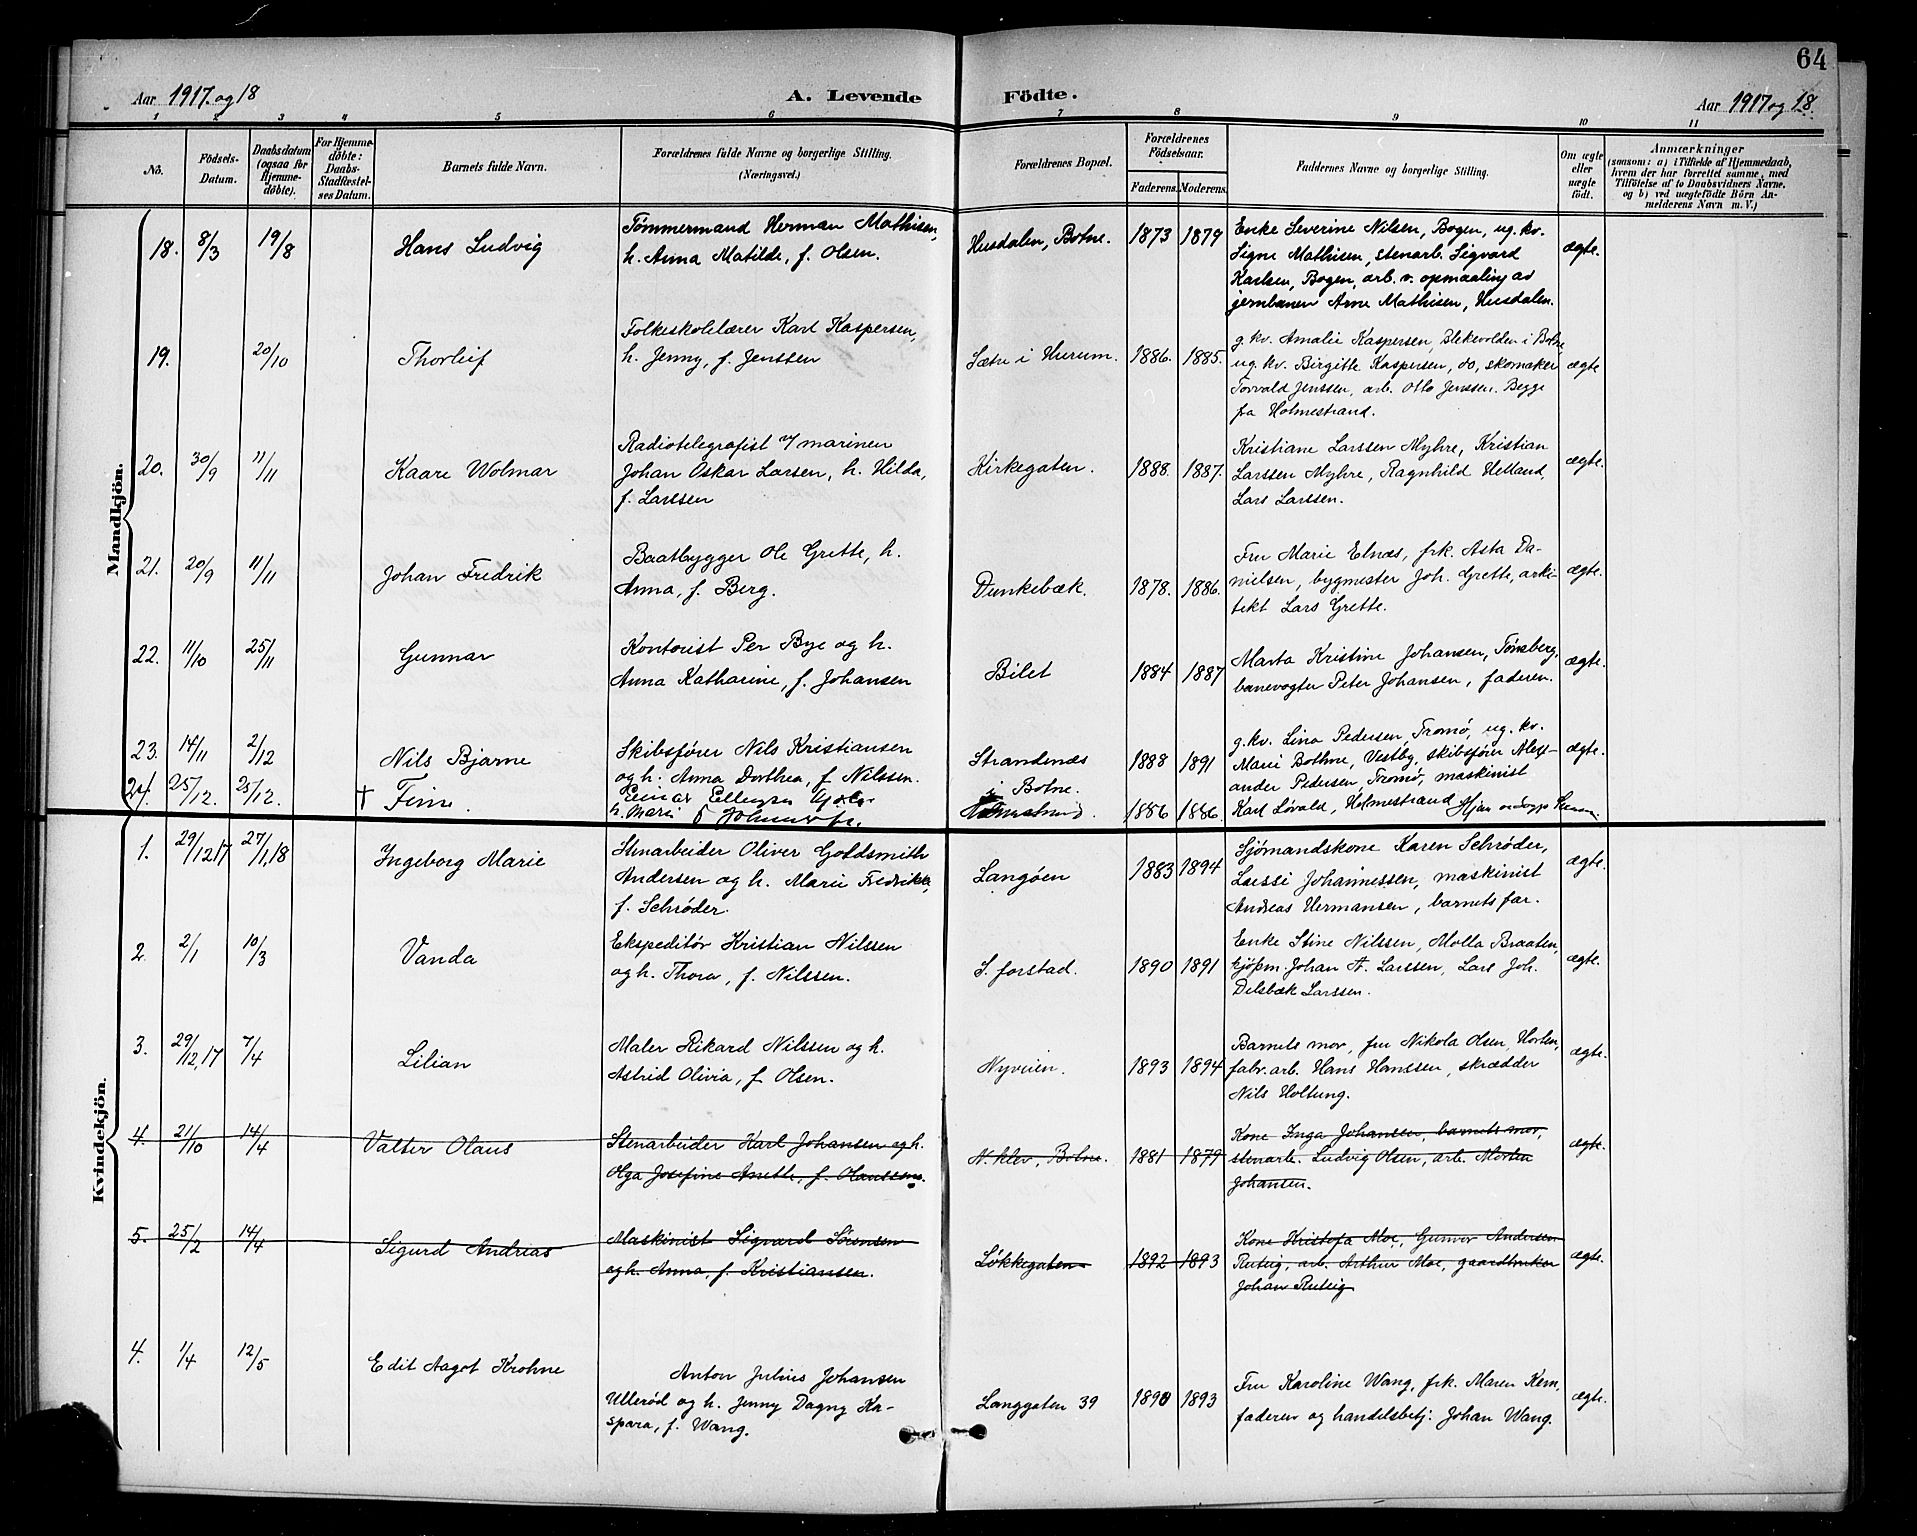 64
Aar 1917 og 18
A. Levende Födte.
Aar 1917 og 18.
1 2 3 4 5 6 7 8 9 10 11
No.
Födsels-Datum.
Daabsdatum (ogsaa for Hjemmedöbte).
For Hjemmedöbte: Daabs-Stadfæstelses Datum.
Barnets fulde Navn.
Forældrenes fulde Navne og borgerlige Stilling. (Næringsvei.)
Forældrenes Bopæl.
Forældrenes Födselsaar.
Faderens. Moderens.
Faddernes Navne og borgerlige Stilling.
Om ægte eller uægte födt.
Anmærkninger
(saasom: a) i Tilfælde af Hjemmedaab, hvem der har forrettet samme, med Tilföielse af to Daabsvidners Navne, og b) ved uægtefödte Börn Anmelderens Navn m. V.)
Mandkjön.
18. 8/3 19/8 Hans Ludvig
Tømmermand Herman Mathisen,
h. Anna Matilde, f. Olsen.
Husdalen, Botne. 1873 1879
Enke Severine Nilsen, Bogen, ug. kv.
Signe Mathisen, stenarb. Sigvard
Karlsen, Bogen, arb. v. opmaaling av
jernbanen Arne Mathisen, Husdalen.
ægte.
19. 20/10 Thorleif
Folkeskolelærer Karl Kaspersen,
h. Jenny, f. Jenssen
Sætre i Hurum. 1886. 1885.
g. kv. Amalie Kaspersen, Blekevolden i Botne,
ug. kv. Birgitte Kaspersen, do, skomaker
Torvald Jenssen, arb. Otto Jenssen. Begge
fra Holmestrand.
ægte
20. 30/9 11/11 Kaare Wolmar
Radiotelegrafist v/ marinen
Johan Oskar Larsen, h. Hilda,
f. Larssen
Kirkegaten. 1888. 1887.
Kristiane Larssen Myhre, Kristian
Larssen Myhre, Ragnhild Helland,
Lars Larssen.
ægte.
21. 20/9 11/11 Johan Fredrik
Baatbygger Ole Grette, h.
Anna, f. Berg.
Dunkebæk. 1878. 1886.
Fru Marie Elnæs, frk. Asta Da-
nielsen, bygmester Joh. Grette, arki-
tekt Lars Grette.
ægte.
22. 11/10 25/11 Gunnar
Kontorist Per Bye og h.
Anna Katharine, f. Johansen
Bilet 1884 1887
Marta Kristine Johansen, Tønsberg,
banevogter Peter Johansen, faderen.
ægte.
23. 14/11 2/12 Nils Bjarne
Skibsfører Nils Kristiansen
og h. Anna Dorthea, f. Nilssen.
Strandenæs
i Botne.
1888 1891
g. kv. Lina Pedersen, Tromø, ug. kv.
Marie Bothne, Vestby, skibsfører Alex-
ander Pedersen, Tromø, maskinist
Karl Løvald, Holmestrand
ægte.
24. 25/12. 25/12. † Finn.
Einar Ellegsen
h. Marie f.
1886 1886.
Kvindekjön.
1. 29/12 17 27/1, 18 Ingeborg Marie
Stenarbeider Oliver Goldsmith
Andersen og h. Marie Fredrikke,
f. Schrøder.
Langøen 1883 1894
Sjømandskone Karen Schrøder,
Lassi Johannessen, maskinist
Andreas Hermansen, barnets far.
ægte.
2. 2/1 10/3 Vanda
Ekspeditør Kristian Nilssen
og h. Thora, f. Nilssen.
S. forstad. 1890 1891
Enke Stine Nilssen, Molla Braaten,
kjøpm. Johan A. Larssen, Lars Joh.
Delsbæk Larssen.
ægte.
3. 29/12, 17 7/4 Lilian
Maler Rikard Nilssen og h.
Astrid Olivia, f. Olsen.
Nyveien. 1893 1894
Barnets mor, fru Nikola Olsen, Horten,
fabr. arb. Hans Hanssen, skrædder
Nils Holtung.
ægte.
4. 21/10 14/4 Valter Olaus
Stenarbeider Karl Johansen og h.
Olga Josefine Anette, f. Olaussen.
N. klev, Botne. 1881 1879
Kone Inga Johansen, barnets mor,
stenarb. Ludvig Olsen, arb. Morten
Johansen.
ægte.
5. 25/2 14/4 Sigurd Andreas
Maskinist Sigvard Sørensen
og h. Anna, f. Kristiansen.
Løkkegaten 1892 1893
Kone Kristofa Moe, Gunvor Andersen
Ruteig, arb. Arthur Moe, gaardbruker
Johan Ruteig
ægte.
4. 1/4 12/5 Edit Aagot Krohne
Anton Julius Johansen
Ullerød og h. Jenny Dagny Ka-
spara, f. Wang.
Langgaten 39 1890 1893
Fru Karoline Wang, frk. Maren Kem,
faderen og handelsbetj. Johan Wang.
ægte.